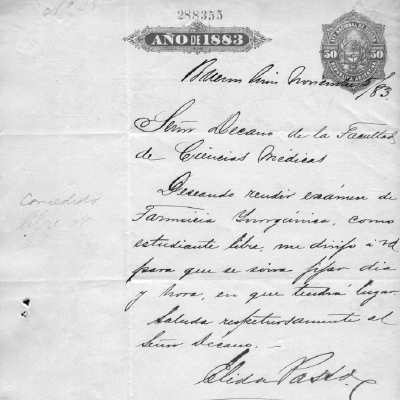 288355
AÑO DE 1883
50 50
Buenos Aires Noviembre /83.
Señor Decano de la Facultad
de Ciencias Médicas
Deseando rendir exámen de
Farmácia Inorgánica, como
estudiante libre, me dirijo á vd
para que se sirva fijar dia
y hora, en que tendrá lugar.
Saluda respetuosamente al
Señor Décano. —
Concedido
Elida Passo.